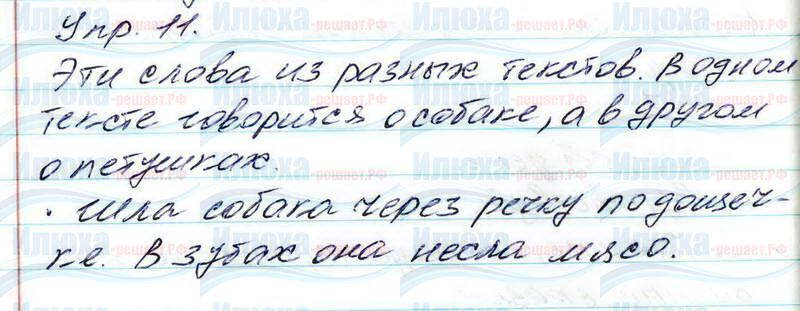 Упр. 11.
Эти слова из разных текстов. В одном
тексте говорится о собаке, а в другом
о петушках.
. Шла собака через речку по дощеч-
ке. В зубах она несла мясо.